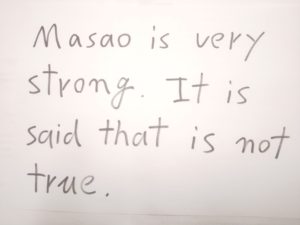 Masao is very
strong. It is
said that is not
true.